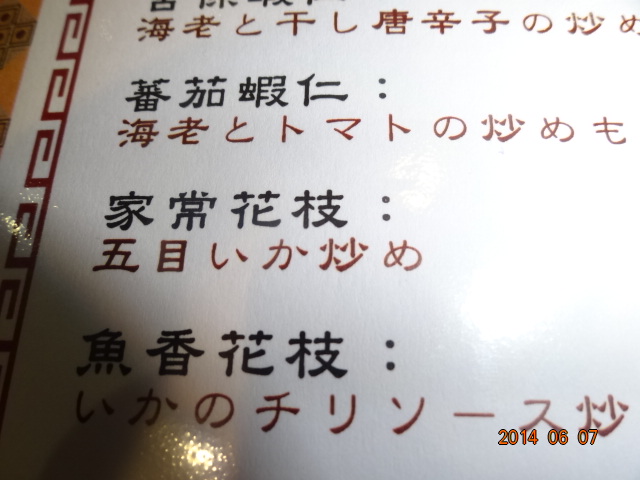 宮保蝦仁
海老と干し唐辛子の炒め
蕃茄蝦仁：
海老とトマトの炒めも
家常花枝：
五目いか炒め
魚香花枝：
いかのチリソース炒
2014 06 07